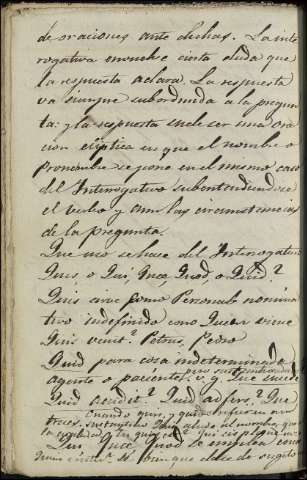 de oraciones ante dichas. La inte
rogativa envuelve cierta duda que
la respuesta aclara. La respuesta
va siempre subordinada a la pregun
ta: y la respuesta suele ser una ora
cion eliptica en que el nombre o
pronombre se pone en el mismo caso
del Interrogativo subentendiendose
el verbo y aun las circunstancias
de la pregunta.
Que uso se hace del Interrogativo
Quis o Qui Quae, Quod, o Quid?
Quis sirve como Personal nomina
tivo indefinido como Quien viene
Quis venit? Petrus, Pedro
Quid para cosa indeterminada
agente o paciente. v. g. Que sucede
Quid accidit? Quid adfers? Que
traes.
Qui Quae Quod se emplea como